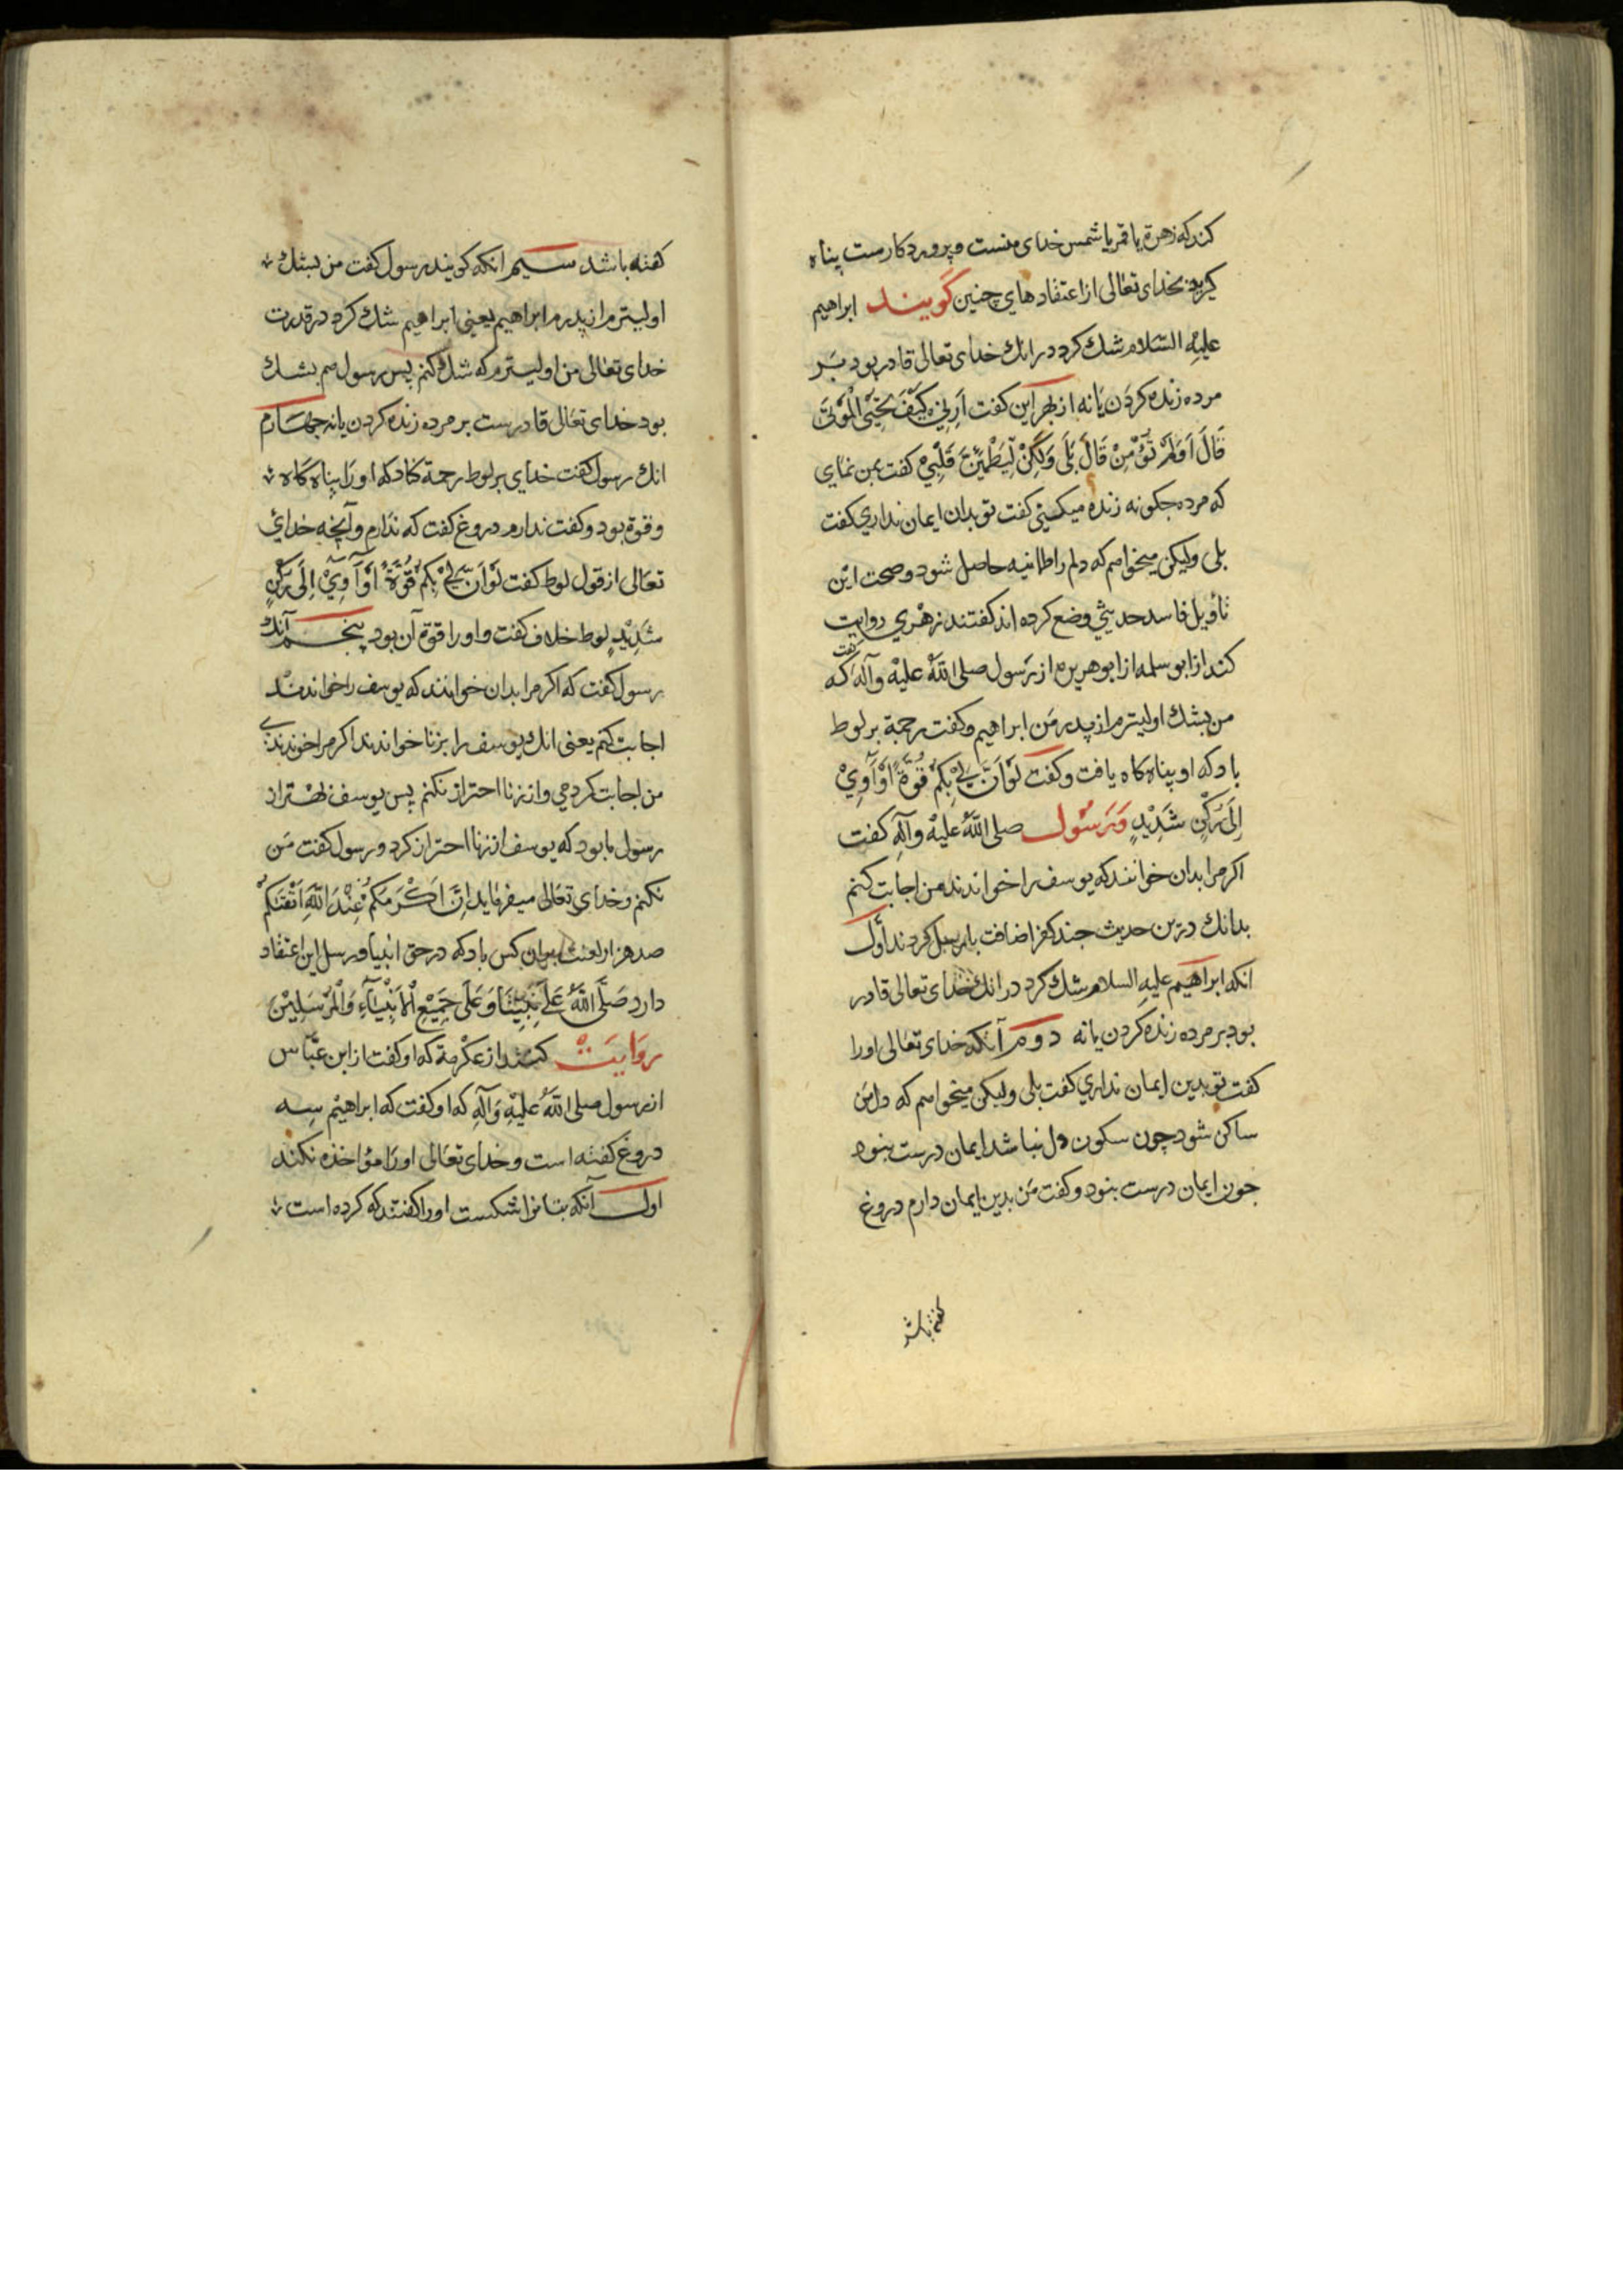 کند که زهرة یا قمر یا شمس خدای منست و پروردکارست پناه
کیرید بخدای تعالی از اعتقادهای چنین کویند ابراهیم
علیه السّلام شك کرد در انك خدای تعالی قادر بود بَر
مرده زنده کردن یا نه از بهر این کفت اَرِنِی کَیْفَ تُحْیِی الْمَوْتَی
قَالَ اَوَلَمْ تُؤْمِنْ قَالَ بَلَی وَلَکِنْ لِیَطْمَئِنَّ قَلْبِیْ کفت بمن نمای
که مرده جکونه زنده میکنی کفت تو بدان ایمان نداری کفت
بلی ولیکن میخواهم که دلم را طمانیه حاصل شود و صحت این
تأویل فاسد حدیثی وضع کرده اند کفتند زهری روایت
کند از ابو سلمه از ابو هریره از رسول صلی اللّه علیه وآله که کفت
من بشك اولیترم از پدر من ابراهیم و کفت رحمة بر لوط
باد که او پناه کاه یافت و کفت لَوْاَنَّ لِیْ بِکُمْ قُوَّةً اَوْآوِیْ
اِلَی رُکْنٍ شَدِیْدٍ وَرَسُول صلی اللّهُ علیه وآلهِ کفت
اکر مرا بدان خوانند که یوسف را خواندند من اجابت کنم
بدانك درین حدیث جند کفر اضافت با مرسل کردند اوّل
انکه ابراهیم علیه السلام شك کرد در انك خدای تعالی قادر
بود بر مرده زنده کردن یا نه دوم آنکه خدای تعالی اورا
کفت تو بدین ایمان نداری کفت بلی ولیکن میخواهم که دل من
ساکن شود چون سکون دل نباشد ایمان درست بنود
جون ایمان درست بنود و کفت من بدین ایمان دارم دروغ
کفته باشد
کفته باشد سیم انکه کویند رسول کفت من بشك
اولیترم از پدرم ابراهیم یعنی ابراهیم شك کرد در قدرت
خدای تعالی من اولیترم که شك کنم پس رسول هم بشك
بود خدای تعالی قادرست بر مرده زنده کردن یا نه جهارم
انك رسول کفت خدای بر لوط رحمة کناد که اورا پناه کاه
و قوة بود و کفت ندارم دروغ کفت که ندارم و آنچه خدای
تعالی از قول لوط کفت لَوْاَنَّ لِیْ بِکُمْ قُوَّةً اَوْآوِیْ اِلَی رُکْنٍ
شَدِیْدٍ لوط خلاف کفت و اورا قوة آن بود پنجم آنك
رسول کفت که اکر مرا بدان خوانند که یوسف را خواندند
اجابت کنم یعنی انك یوسف را بزنا خواندند اکر مرا خوندندی
من اجابت کردمی و از زنا احتراز نکنم پس یوسف بهتر از
رسول ما بود که یوسف از زنا احتراز کرد و رسول کفت من
نکنم و خدای تعالی میفرماید اِنَّ اَکْرَمَکُمْ عِنْدَ اللّهِ اَتْقَیکُمْ
صد هزار لعنت بران کس باد که در حق انبیا و رسل این اعتقاد
دارد صَلَّی اللّهُ عَلَی نَبِیِّنَا وَعَلَی جَمِیْعِ الْاَنْبِیَآءِ وَالْمُرْسَلِیْنَ
روایَت کنند از عکرمة که او کفت از ابن عبّاس
از رسول صلی اللّه علیهِ وَآلهِ که او کفت که ابراهیم سه
دروغ کفته است و خدای تعالی اورا مؤاخذه نکند
اول آنکه بتانرا شکست اورا کفتند که کرده است